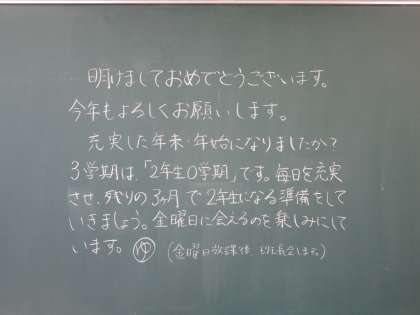 明けましておめでとうございます。
今年もよろしくお願いします。
充実した年末・年始になりましたか？
3学期は、「2年生0学期」です。毎日を充実
させ、残りの3ヶ月で2年生になる準備をして
いきましょう。金曜日に会えるのを楽しみにして
います。 (金曜日放課後、班長会します。)